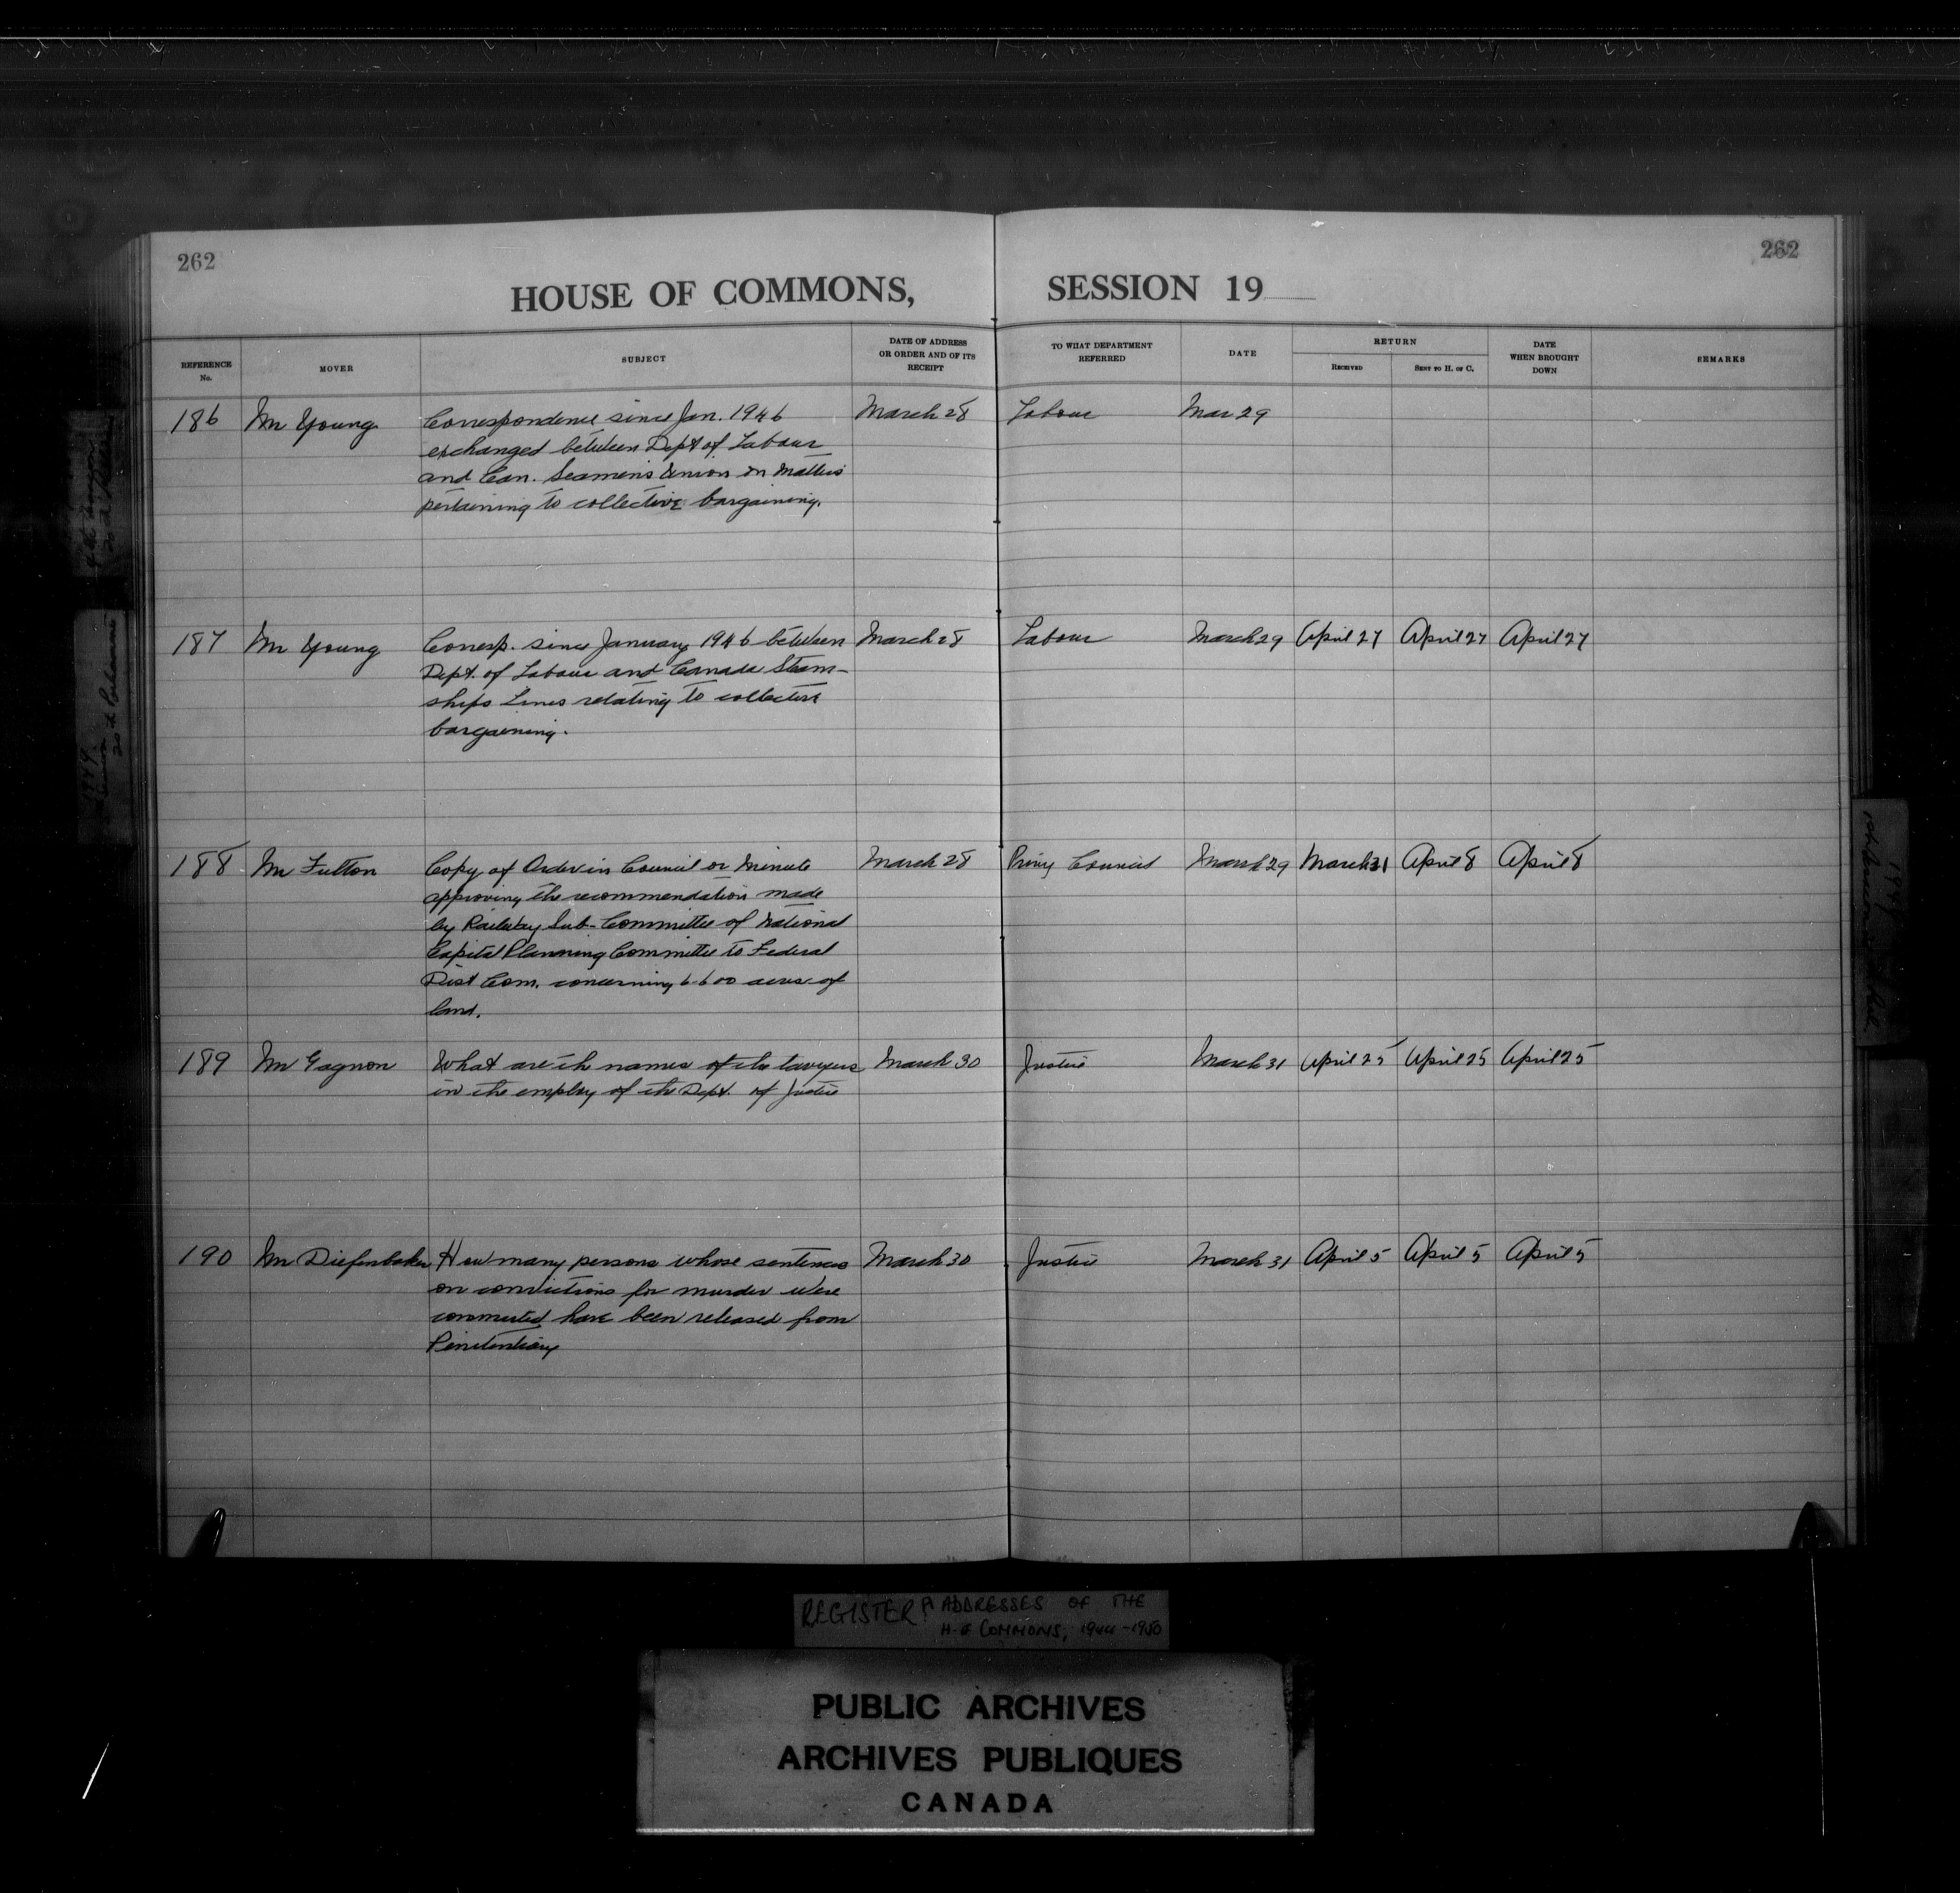 262
262
HOUSE OF COMMONS, SESSION 19
REFERENCE No.
MOVER
SUBJECT
DATE OF ADDRESS OR ORDER AND OF ITS RECEIPT
TO WHAT DEPARTMENT REFERRED
DATE
RETURN
RECEIVED
SENT TO H. OF C.
DATE WHEN BROUGHT DOWN
REMARKS
186 Mr Young Correspondence since Jan. 1946 March 28 Labour Mar 29
exchanged between Dept of Labour
and Can. Seamen's Union on matters
pertaining to collective bargaining.
187 Mr Young Corresp. since January 1946 between March 28 Labour March 29 April 27 April 27 April 27
Dept. of Labour and Canada Steam-
ships Lines relating to collective
bargaining.
188 Mr Fulton Copy of Order in Council or Minute March 28 Privy Council March 29 March 31 April 8 April 8
approving the recommendation made
by Railway Sub-Committee of National
Capital Planning Committee to Federal
Dist Com. concerning 6600 acres of
land.
189 Mr Gagnon What are the names of the lawyers March 30 Justice March 31 April 25 April 25 April 25
in the employ of the Dept. of Justice
190 Mr Diefenbaker How many persons whose sentences March 30 Justice March 31 April 5 April 5 April 5
on convictions for murder were
commuted have been released from
Penitentiary
REGISTER OF ADDRESSES OF THE
H. OF COMMONS, 1944-1950
PUBLIC ARCHIVES
ARCHIVES PUBLIQUES
CANADA